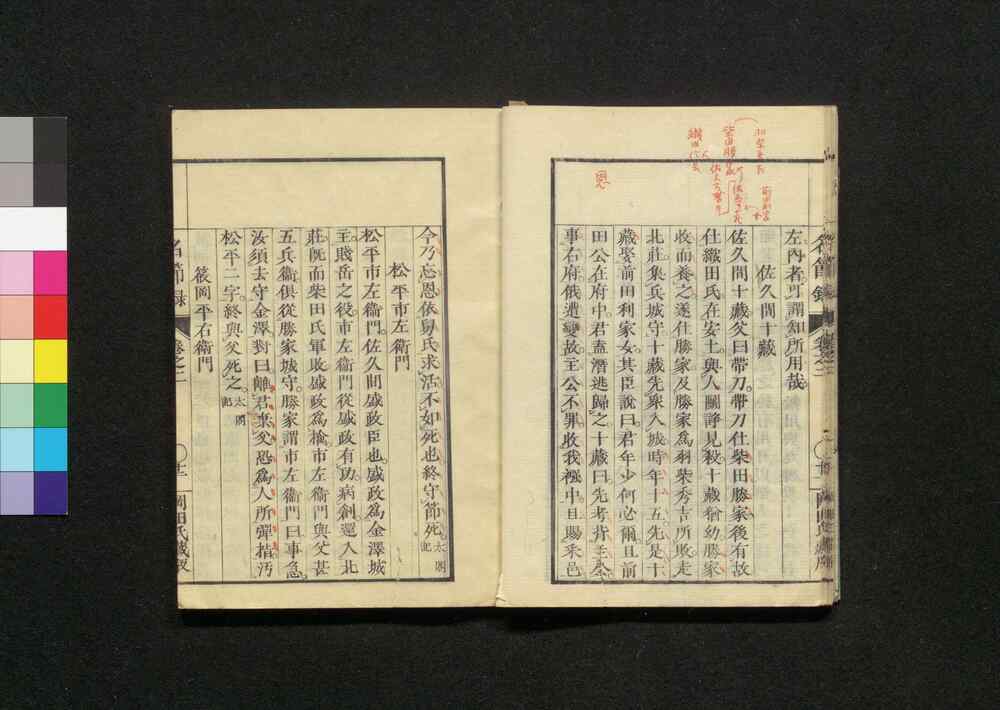 左內者可謂知所用哉
佐久間十藏
佐久間十藏父曰帶刀帶刀仕柴田勝家後有故
仕織田氏在安土與人鬭諍見殺十藏猶幼勝家
收而養之遂仕勝家及勝家爲羽柴秀吉所敗走
北莊集兵城守十藏先衆入城時年十五先是十
藏娶前田利家女其臣說曰君年少何必爾且前
田公在府中君盍潛逃歸之十藏曰先考背主公
事右府俄遭變故主公不罪收我襁中且賜采邑
恩
今乃忘恩依舅氏求活不如死也終守節死太閤記
松平市左衛門
松平市左衛門佐久間盛政臣也盛政爲金澤城
主賤岳之役市左衛門從盛政有功病創還入北
莊既而柴田氏軍敗盛政爲擒市左衛門與父甚
五兵衛俱從勝家城守勝家謂市左衛門曰事急
汝須去守金澤對曰離君棄父恐爲人所彈指汚
松平二字終與父死之太閤記
筱岡平右衛門
名節錄
卷之二
十二
岡田氏藏版